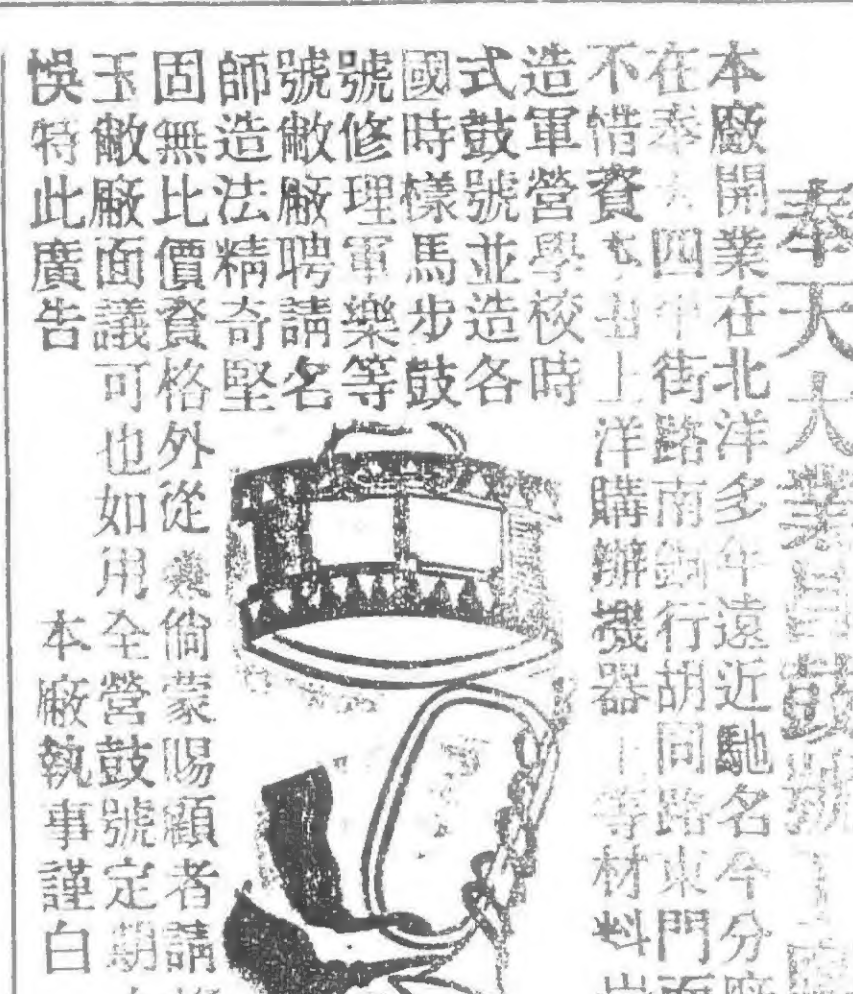 奉天大業昌鼓號工廠
本廠開業在北洋多年遠近馳名今分廠
在奉天四平街路南銅行胡同路東門面
不惜資本由上洋購辦機器上等材料
造軍營學校時
式鼓號並造各
國時樣馬步鼓
號修理軍樂等
號敝廠聘請名
師造法精奇堅
固無比價資格外從廉倘蒙賜顧者請
玉敝廠面議可也如用全營鼓號定期
悞特此廣告
本廠執事謹白